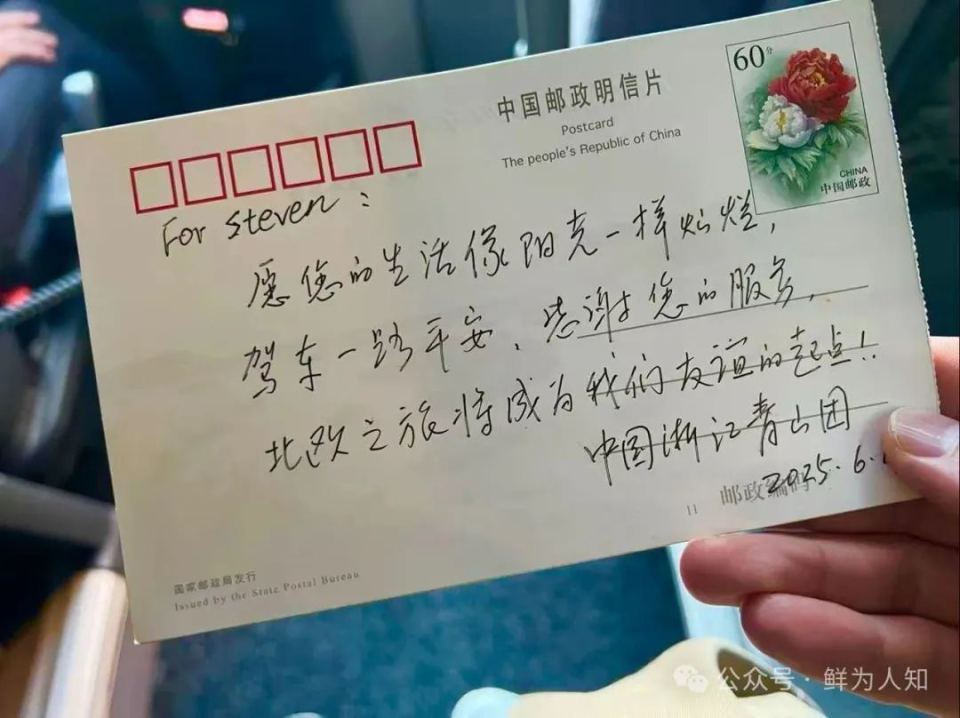 中国邮政明信片
Postcard
The people's Republic of China
60分
CHINA
中国邮政
For steven：
愿您的生活像阳光一样灿烂，
驾车一路平安。感谢您的服务，
北欧之旅将成为我们友谊的起点！！
中国浙江青山团
2025.6.
邮政编码
11
国家邮政局发行
Issued by the State Postal Bureau
公众号·鲜为人知